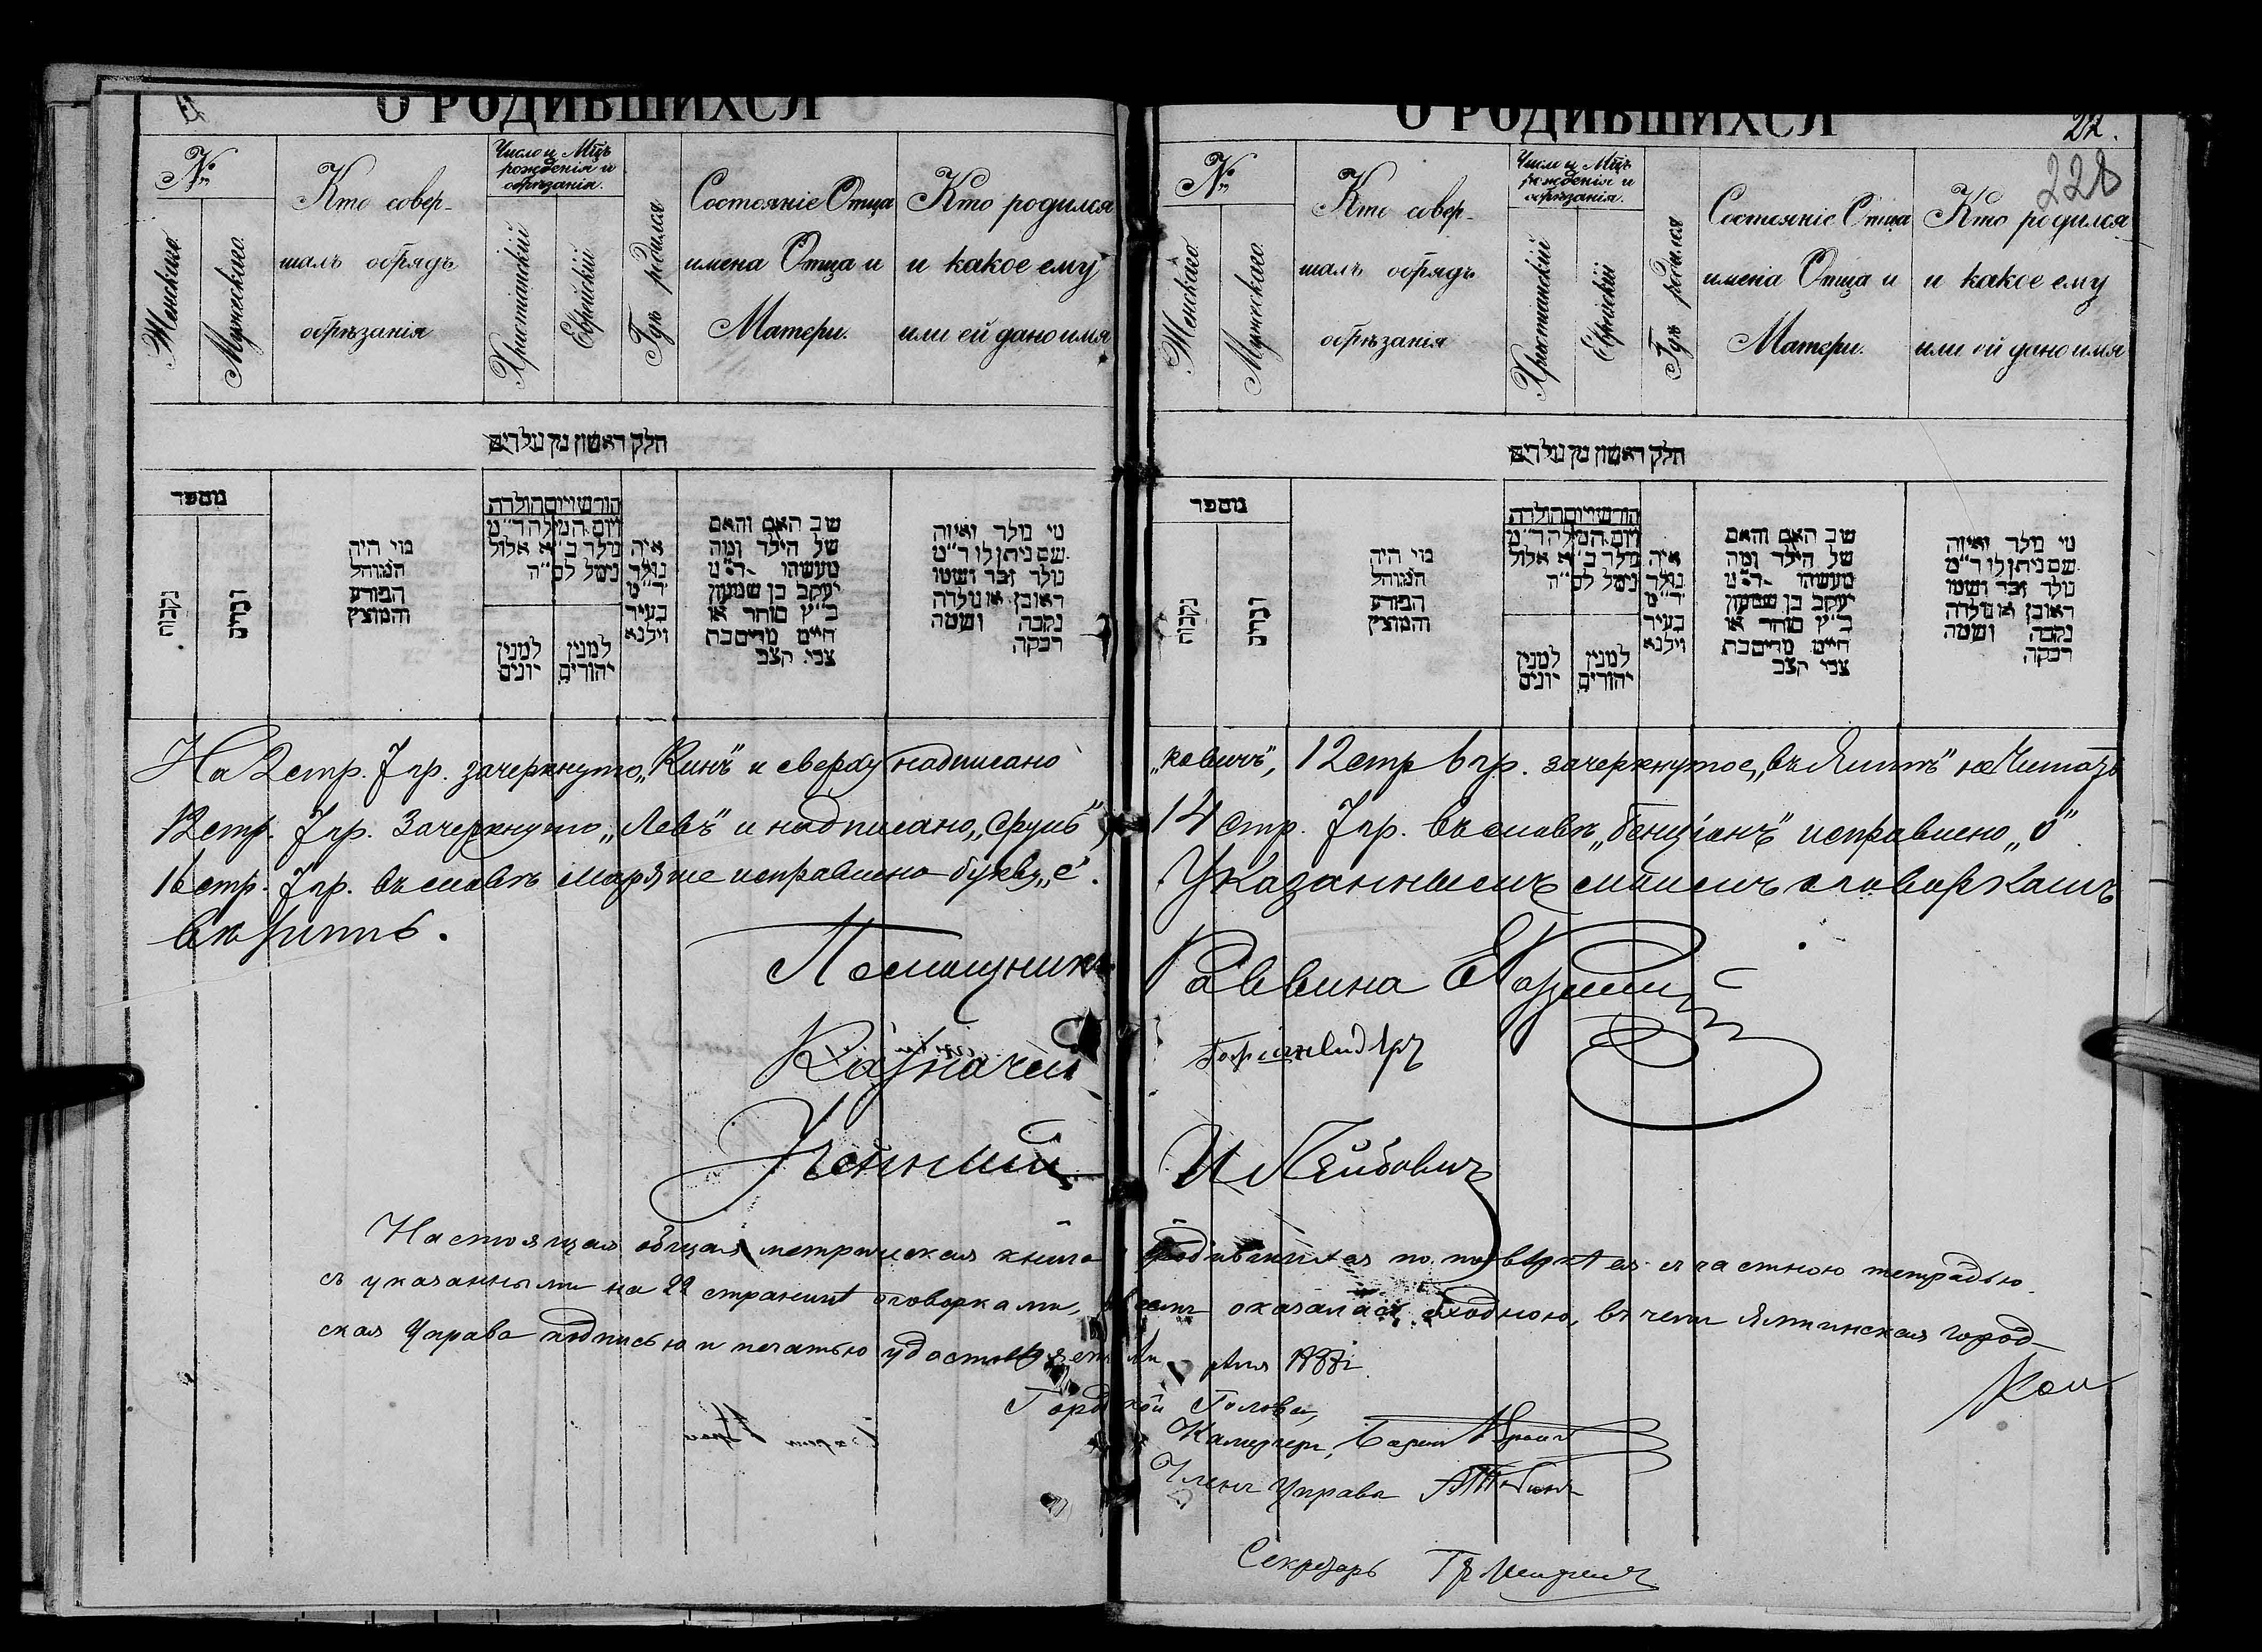 О РОДИВШИХСЯ
№
Женскаго
Мужескаго
Кто совер-
шалъ обрядъ
обрѣзанія
Число и Мцъ
рожденія и
обрѣзанія.
Христіанскій
Еврейскій
Гдѣ родился
Состояніе Отца
имена Отца и
Матери.
Кто родился
и какое ему
или ей дано имя
חלק ראשון מן נולדים
מספר
נקבות
זכרים
מי היה
המוהל
הפורע
והמוצץ
חודש ויום הולדה
ויום המילה ד״מ
נולד ב״א אלול
נימל לס״ה
למנין
יונים
למנין
יהודים
איה
נולד
ד״מ
בעיר
וילנא
שב האם והאם
של הילד ומה
מעשהו ד״מ
יעקב בן שמעון
כ״ץ סוחר או
חיים מרים בת
צבי קצב
מי נולד ואיזה
שם ניתן לו ד״מ
נולד זכר ושמו
ראובן או נולדה
נקבה ושמה
רבקה
На 2 стр. 7 гр. зачеркнуто „Кинъ" и сверху надписано
12 стр. 7 гр. Зачеркнуто „Левъ" и надписано „Сруль"
16 стр. 7 гр. въ словѣ исправлено букву „е".
вѣрить.
Помощникъ
Казначей
Ученый
О РОДИВШИХСЯ
22.
228
№
Женскаго
Мужескаго
Кто совер-
шалъ обрядъ
обрѣзанія
Число и Мцъ
рожденія и
обрѣзанія.
Христіанскій
Еврейскій
Гдѣ родился
Состояніе Отца
имена Отца и
Матери.
Кто родился
и какое ему
или ей дано имя
חלק ראשון מן נולדים
מספר
נקבות
זכרים
מי היה
המוהל
הפורע
והמוצץ
חודש ויום הולדה
ויום המילה ד״מ
נולד ב״א אלול
נימל לס״ה
למנין
יונים
למנין
יהודים
איה
נולד
ד״מ
בעיר
וילנא
שב האם והאם
של הילד ומה
מעשהו ד״מ
יעקב בן שמעון
כ״ץ סוחר או
חיים מרים בת
צבי קצב
מי נולד ואיזה
שם ניתן לו ד״מ
נולד זכר ושמו
ראובן או נולדה
נקבה ושמה
רבקה
„ковичъ", 12 стр 6 гр. зачеркнутое „въ Ялтѣ" не Читать
14 стр. 7 гр. въ словѣ „Бенціонъ" исправлено „о"
Указаннымъ симъ оговоркамъ
Раввина
И Лейбовичъ
Настоящая общая метрическая книга родившихся по повѣркѣ ея съ частною тетрадью
съ указанными на 22 страницѣ оговорками, оказалась сходною, въ чемъ Ялтинская город-
ская Управа подписью и печатью удостовѣряетъ дня
Городской Голова,
Камергеръ, Баронъ
Членъ Управы
Секретарь